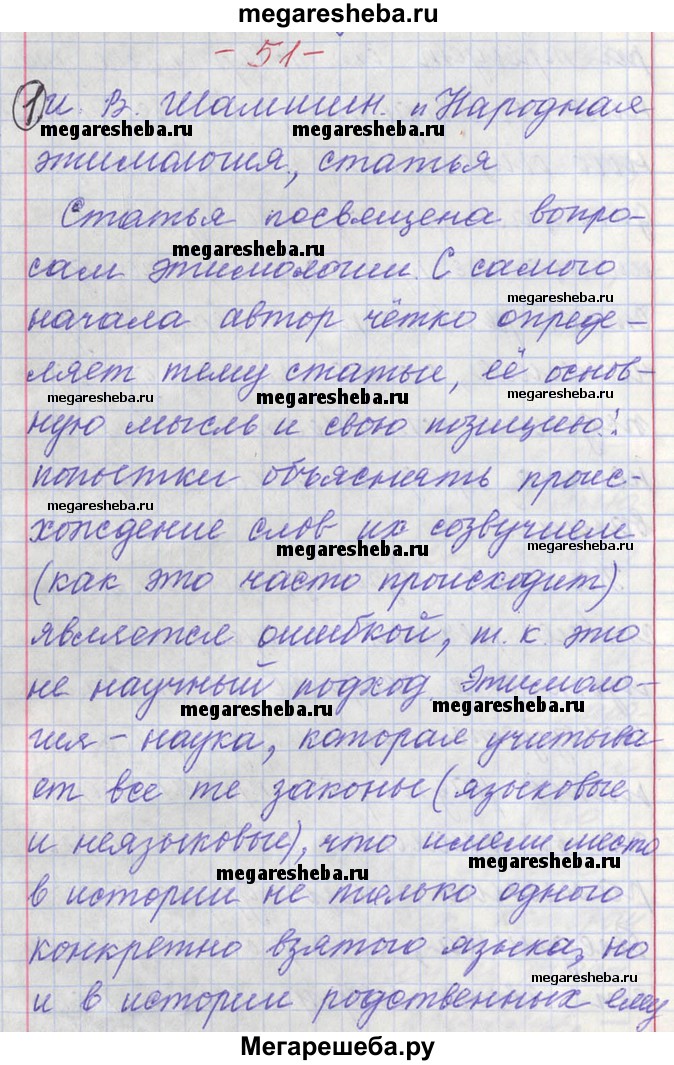 megaresheba.ru
- 51 -
1 И. В. Шамшин. "Народная
megaresheba.ru megaresheba.ru
этимология, статья
Статья посвящена вопро-
megaresheba.ru
сам этимологии. С самого
megaresheba.ru
начала автор чётко опреде-
ляет тему статьи, её основ-
megaresheba.ru megaresheba.ru megaresheba.ru
ную мысль и свою позицию:
попытки объяснять проис-
megaresheba.ru
хождение слов их созвучием
megaresheba.ru megaresheba.ru
(как это часто происходит)
является ошибкой, т. к. это
не научный подход Этимоло-
megaresheba.ru megaresheba.ru
гия - наука, которая учитыва
ет все те законы (языковые
и неязыковые), что имели место
megaresheba.ru megaresheba.ru
в истории не только одного
конкретно взятого языка, но
megaresheba.ru
и в истории родственных ему
Мегарешеба.ру